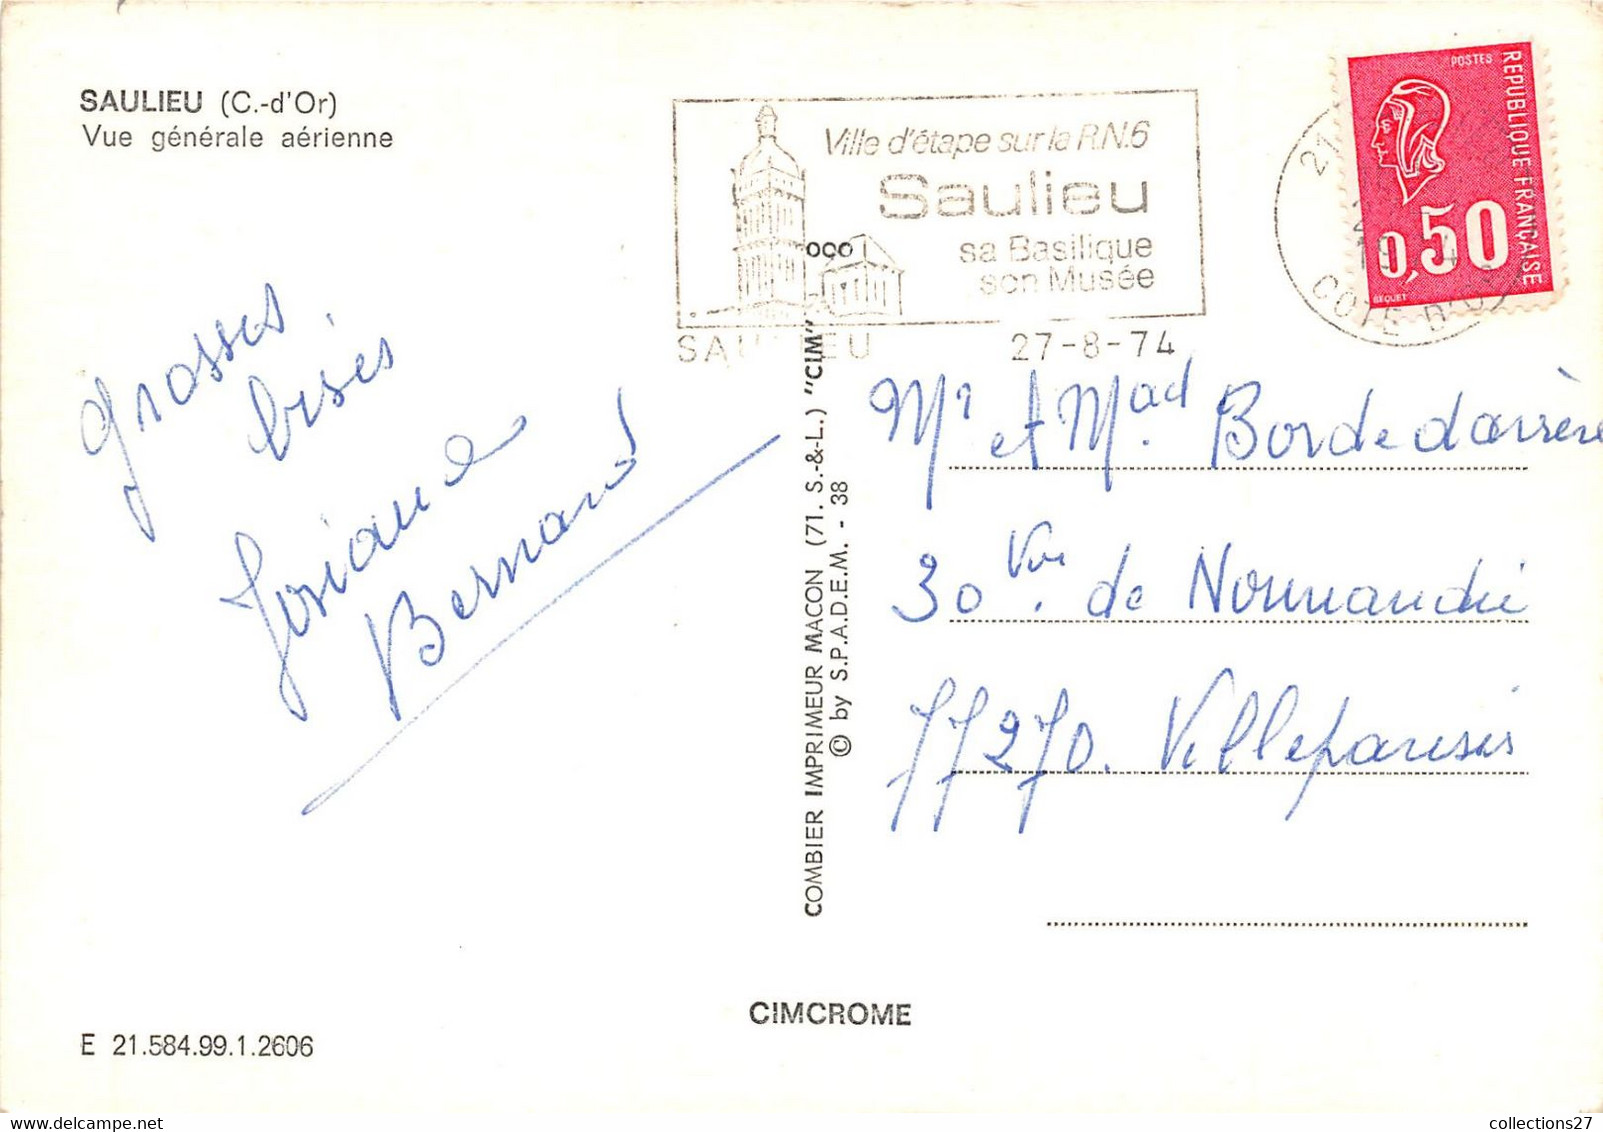 SAULIEU (C.-d'Or)
Vue générale aérienne
Ville d'étape sur la R.N.6
Saulieu
sa Basilique
son Musée
SAULIEU 27-8-74
21
COTE D'OR
POSTES
REPUBLIQUE FRANÇAISE
0,50
BEQUET
grosses
bises
Josiane
Bernard
COMBIER IMPRIMEUR MACON (71. S.-&-L.) "CIM"
© by S.P.A.D.E.M. - 38
Mr et Mad. Bordedarrère
30 de Normandie
77270. Villeparisis
CIMCROME
E 21.584.99.1.2606
collections27